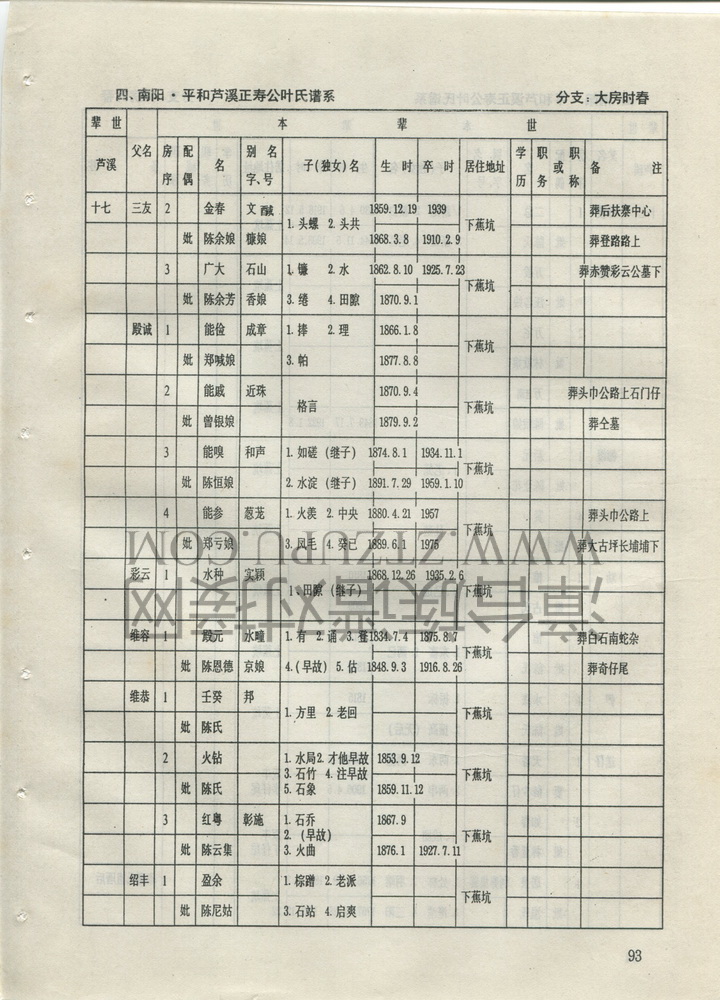 四、南阳·平和芦溪正寿公叶氏谱系 分支：大房时春
辈世 本辈世
芦溪 父名 房序 配偶 名 别名字、号 子(独女)名 生时 卒时 居住地址 学历 职务或职称 备注
十七 三友 2 金春 文醎 1.头螺 2.头共 1859.12.19 1939 下蕉坑 葬后扶寨中心
妣 陈余娘 糠娘 1868.3.8 1910.2.9 葬登路路上
3 广大 石山 1.镰 2.水 1862.8.10 1925.7.23 下蕉坑 葬赤赞彩云公墓下
妣 陈余芳 香娘 3.绻 4.田隙 1870.9.1
殿诚 1 能俭 成章 1.捧 2.理 1866.1.8 下蕉坑
妣 郑喊娘 3.帕 1877.8.8
2 能戚 近珠 格言 1870.9.4 下蕉坑 葬头巾公路上石门仔
妣 曾银娘 1879.9.2 葬仝墓
3 能嗅 和声 1.如磋(继子) 1874.8.1 1934.11.1 下蕉坑
妣 陈恒娘 2.水淀(继子) 1891.7.29 1959.1.10
4 能参 葱茏 1.火羡 2.中央 1880.4.21 1957 下蕉坑 葬头巾公路上
妣 郑亏娘 3.凤毛 4.癸已 1889.6.1 1975 葬大古坪长埔埔下
彩云 1 水种 实颖 1、田隙(继子) 1868.12.26 1935.2.6 下蕉坑
维容 1 殿元 水疃 1.有 2.诵 3.登 1834.7.4 1875.8.7 下蕉坑 葬白石南蛇杂
妣 陈恩德 京娘 4.(早故) 5.估 1848.9.3 1916.8.26 葬奇仔尾
维恭 1 壬癸 邦 1.方里 2.老回 下蕉坑
妣 陈氏
2 火钻 1.水局2.才他早故 1853.9.12 下蕉坑
3.石竹 4.注早故
妣 陈氏 5.石象 1859.11.12
3 红粤 彰施 1.石乔 1867.9 下蕉坑
2.(早故)
妣 陈云集 3.火曲 1876.1 1927.7.11
绍丰 1 盈余 1.棕蹭 2.老派 下蕉坑
妣 陈尼姑 3.石站 4.启爽
WWW.ZTZUPU.COM
93